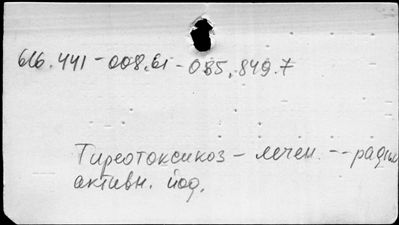 616.441-008.61-085.849.7
Тиреотоксикоз - лечен. -- радио
активн. йод.